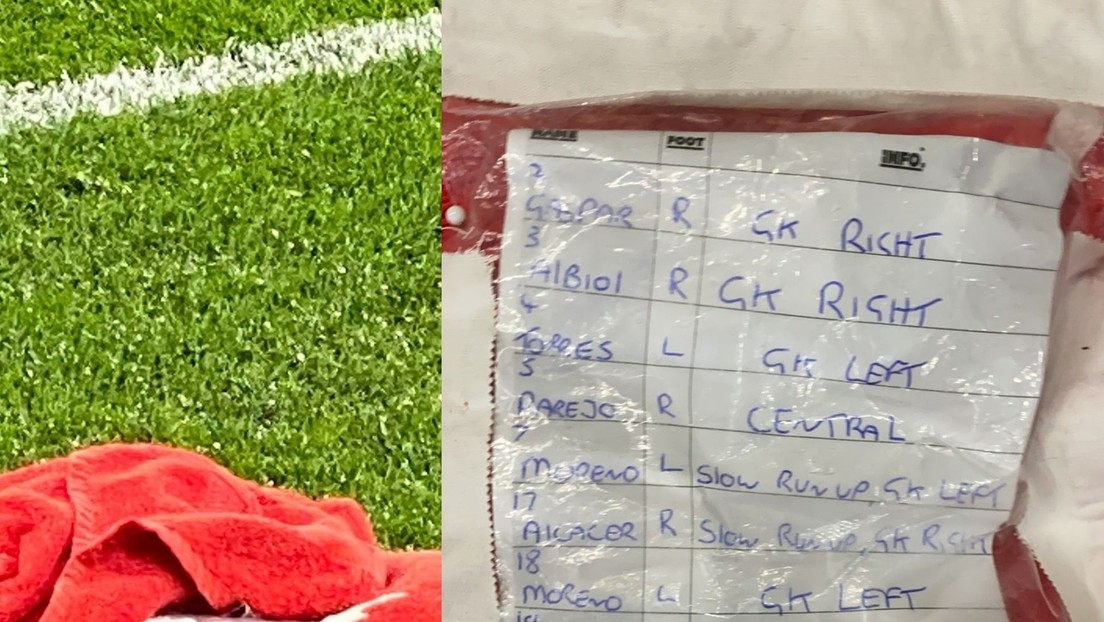 NAME FOOT INFO.
2
GASPAR R GK RIGHT
3
AlBIOl R GK RIGHT
4
TORRES L GK LEFT
5
PAREJO R CENTRAL
7
MORENO L Slow RUN UP, GK LEFT
17
AlCACER R Slow Run up, GK RIGHT
18
MORENO L GK LEFT